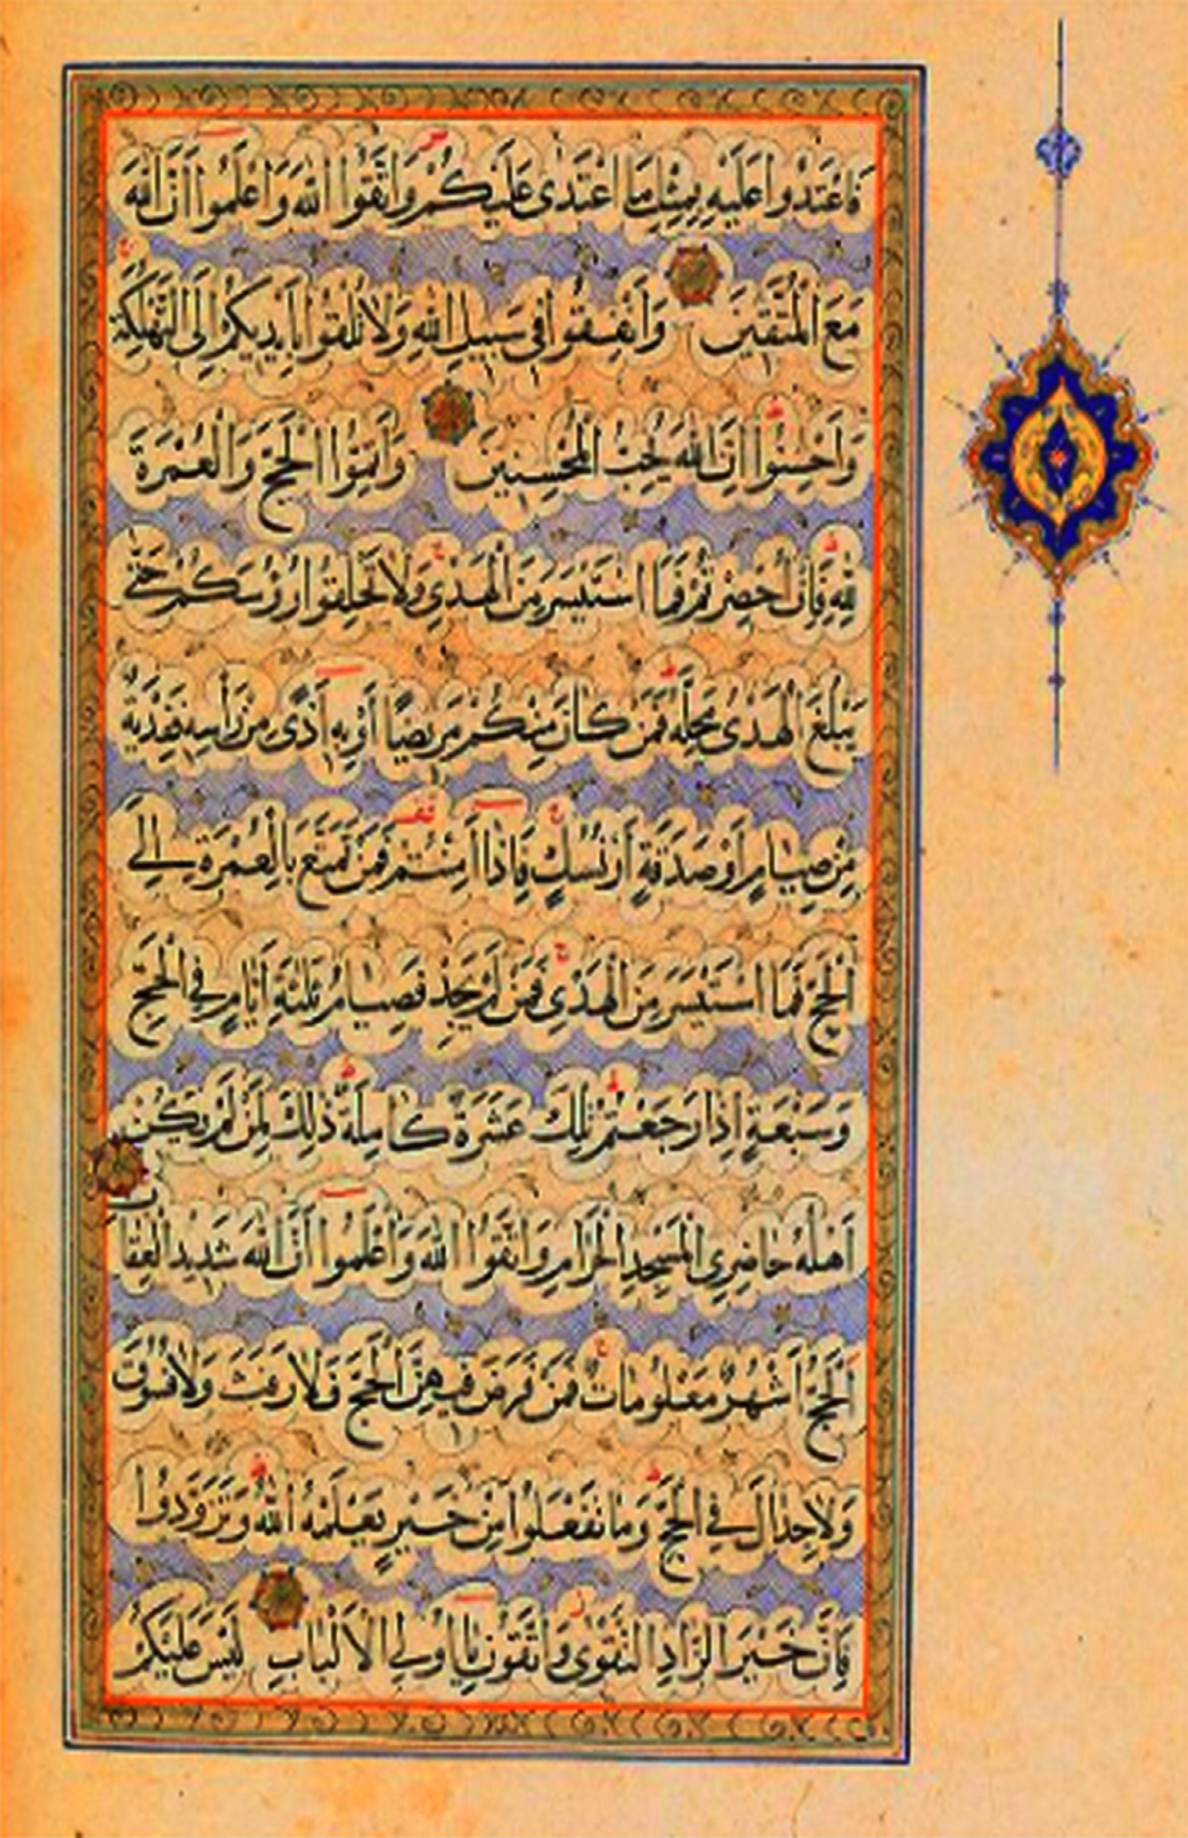 فَاعْتَدُوا عَلَيْهِ بِمِثْلِ مَا اعْتَدٰى عَلَيْكُمْ وَاتَّقُوا اللّٰهَ وَاعْلَمُوا اَنَّ اللّٰهَ
مَعَ الْمُتَّقِينَ وَاَنْفِقُوا فِى سَبِيلِ اللّٰهِ وَلَا تُلْقُوا بِاَيْدِيكُمْ اِلَى التَّهْلُكَةِ
وَاَحْسِنُوا اِنَّ اللّٰهَ يُحِبُّ الْمُحْسِنِينَ وَاَتِمُّوا الْحَجَّ وَالْعُمْرَةَ
لِلّٰهِ فَاِنْ اُحْصِرْتُمْ فَمَا اسْتَيْسَرَ مِنَ الْهَدْىِ وَلَا تَحْلِقُوا رُؤُسَكُمْ حَتّٰى
يَبْلُغَ الْهَدْىُ مَحِلَّهُ فَمَنْ كَانَ مِنْكُمْ مَرِيضًا اَوْ بِهِ اَذًى مِنْ رَاْسِهِ فَفِدْيَةٌ
مِنْ صِيَامٍ اَوْ صَدَقَةٍ اَوْ نُسُكٍ فَاِذَا اَمِنْتُمْ فَمَنْ تَمَتَّعَ بِالْعُمْرَةِ اِلَى
الْحَجِّ فَمَا اسْتَيْسَرَ مِنَ الْهَدْىِ فَمَنْ لَمْ يَجِدْ فَصِيَامُ ثَلٰثَةِ اَيَّامٍ فِى الْحَجِّ
وَسَبْعَةٍ اِذَا رَجَعْتُمْ تِلْكَ عَشَرَةٌ كَامِلَةٌ ذٰلِكَ لِمَنْ لَمْ يَكُنْ
اَهْلُهُ حَاضِرِى الْمَسْجِدِ الْحَرَامِ وَاتَّقُوا اللّٰهَ وَاعْلَمُوا اَنَّ اللّٰهَ شَدِيدُ الْعِقَابِ
اَلْحَجُّ اَشْهُرٌ مَعْلُومَاتٌ فَمَنْ فَرَضَ فِيهِنَّ الْحَجَّ فَلَا رَفَثَ وَلَا فُسُوقَ
وَلَا جِدَالَ فِى الْحَجِّ وَمَا تَفْعَلُوا مِنْ خَيْرٍ يَعْلَمْهُ اللّٰهُ وَتَزَوَّدُوا
فَاِنَّ خَيْرَ الزَّادِ التَّقْوٰى وَاتَّقُونِ يَا اُولِى الْاَلْبَابِ لَيْسَ عَلَيْكُمْ